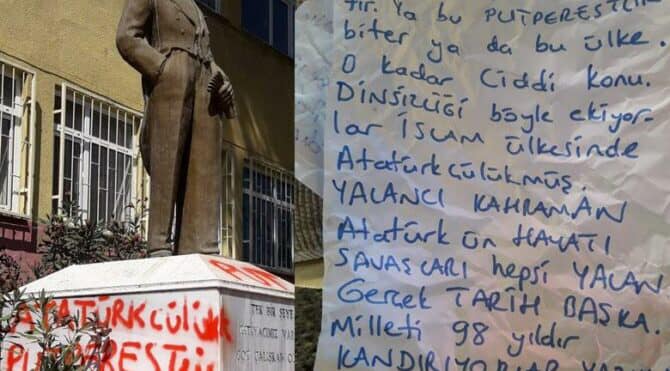 ATATÜRKCÜLÜK
PUTPERESTLİK
TEK BİR ŞEYE
İHTİYACIMIZ VAR
ÇOK ÇALIŞKAN O
tir. Ya bu PUTPERESTLİK
biter ya da bu ülke.
O kadar Ciddi konu.
DİNSİZLİĞİ böyle ekiyor-
lar İSLAM ülkesinde
Atatürkçülükmüş.
YALANCI KAHRAMAN
Atatürk ün HAYATI
SAVAŞLARI hepsi YALAN
Gerçek TARİH BAŞKA.
Milleti 98 yıldır
KANDIRIYORLAR